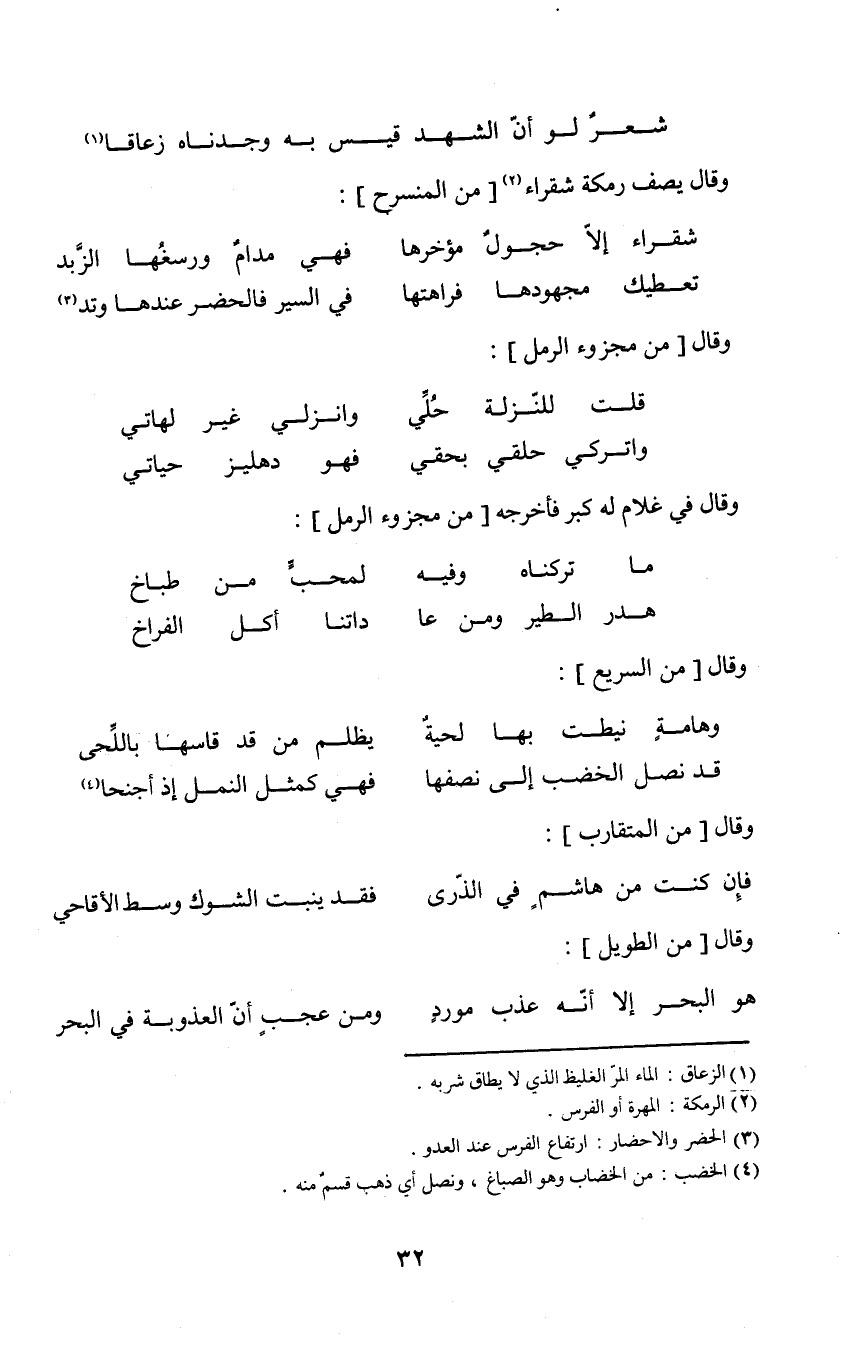 شعرٌ لو أنّ الشهد قيس به وجدناه زعاقا(١)
وقال يصف رمكة شقراء(٢) [ من المنسرح ] :
شقراء إلاّ حجولُ مؤخرها فهي مدامٌ ورسغُها الزَّبد
تعطيك مجهودها فراهتها في السير فالحضر عندها وتد(٣)
وقال [ من مجزوء الرمل ] :
قلت للنّزلة حُلِّي وانزلي غير لهاتي
واتركي حلقي بحقي فهو دهليز حياتي
وقال في غلام له كبر فأخرجه [ من مجزوء الرمل ] :
ما تركناه وفيه لمحبٍّ من طباخ
هدر الطير ومن عا داتنا أكل الفراخ
وقال [ من السريع ] :
وهامةٍ نيطت بها لحيةٌ يظلم من قد قاسها باللِّحى
قد نصل الخضب إلى نصفها فهي كمثل النمل إذ أجنحا(٤)
وقال [ من المتقارب ] :
فإن كنت من هاشمٍ في الذّرى فقد ينبت الشوك وسط الأقاحي
وقال [ من الطويل ] :
هو البحر إلا أنّه عذب موردٍ ومن عجبٍ أنّ العذوبة في البحر
(١) الزعاق : الماء المرّ الغليظ الذي لا يطاق شربه .
(٢) الرمكة : المهرة أو الفرس .
(٣) الحضر والاحضار : ارتفاع الفرس عند العدو .
(٤) الخضب : من الخضاب وهو الصباغ ، ونصل أي ذهب قسمٌ منه .
٣٢